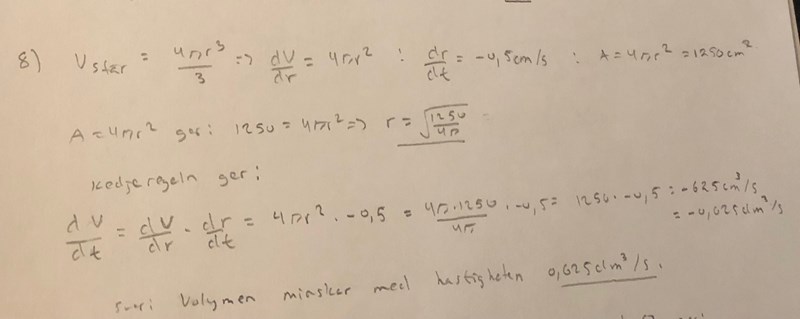 8) V sfär = 4πr³/3 => dV/dr = 4πr² : dr/dt = -0,5cm/s : A = 4πr² = 1250cm²
A = 4πr² ger: 1250 = 4πr² => r = √(1250/4π)
Kedjeregeln ger:
dV/dt = dV/dr · dr/dt = 4πr² · -0,5 = 4π·1250/4π · -0,5 = 1250 · -0,5 = -625cm³/s
= -0,625dm³/s
Svar: Volymen minskar med hastigheten 0,625dm³/s.